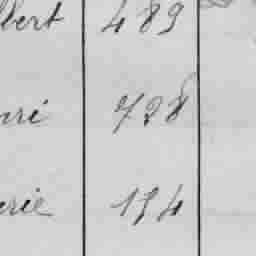 lbert 489
nri 728
rie 154